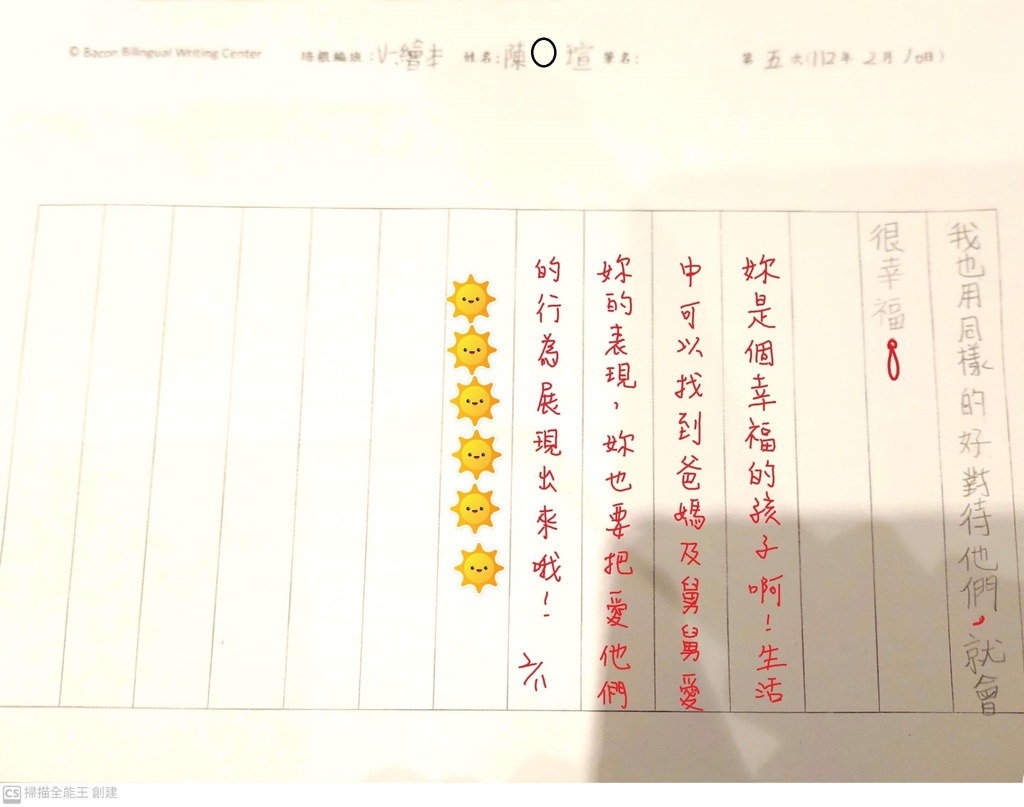 © Bacon Bilingual Writing Center 培根編班: 姓名:陳〇瑄 筆名: 第五次(112年2月10日)
我也用同樣的好對待他們,就會
很幸福。
妳是個幸福的孩子啊!生活
中可以找到爸媽及舅舅愛
妳的表現,妳也要把愛他們
的行為展現出來哦!
2/11
CS 掃描全能王 創建